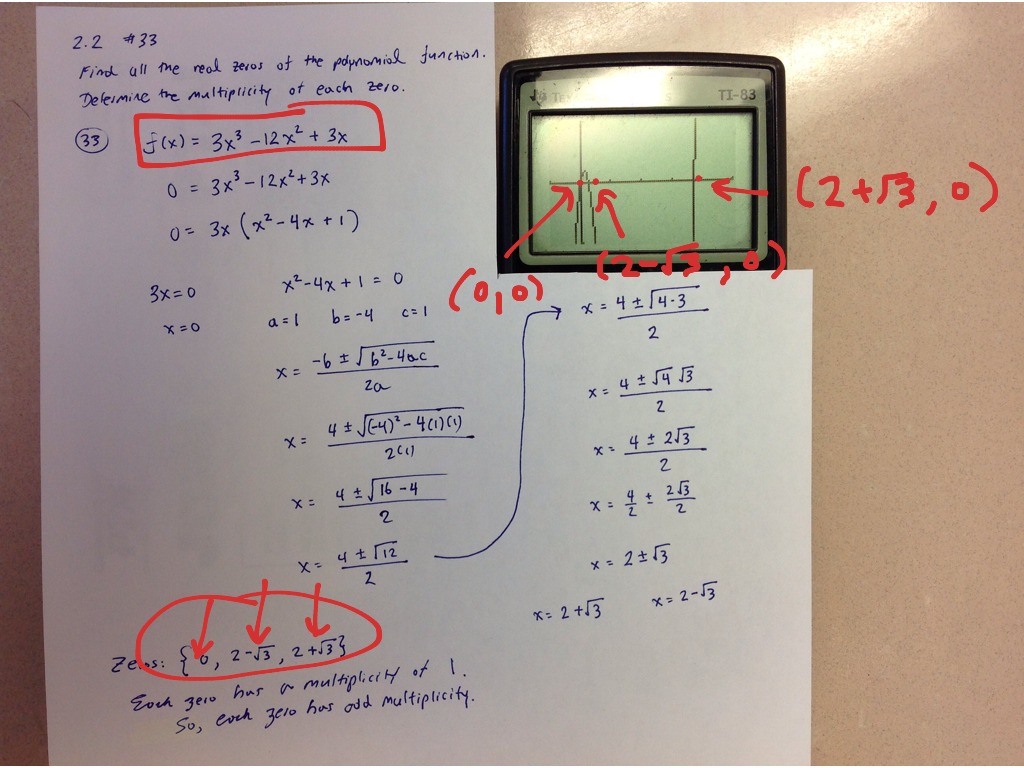 2.2 #33
Find all the real zeros of the polynomial function.
Determine the multiplicity of each zero.
33 f(x) = 3x³ - 12x² + 3x
0 = 3x³ - 12x² + 3x
0 = 3x (x² - 4x + 1)
3x = 0
x = 0
x² - 4x + 1 = 0
a = 1 b = -4 c = 1
x = (-b ± √(b² - 4ac))/(2a)
x = (4 ± √((-4)² - 4(1)(1)))/(2(1))
x = (4 ± √(16 - 4))/2
x = (4 ± √12)/2
TI-83
(0,0)
(2-√3, 0)
(2+√3, 0)
x = (4 ± √(4·3))/2
x = (4 ± √4 √3)/2
x = (4 ± 2√3)/2
x = 4/2 ± 2√3/2
x = 2 ± √3
x = 2 + √3 x = 2 - √3
Zeros: {0, 2-√3, 2+√3}
Each zero has a multiplicity of 1.
So, each zero has odd multiplicity.